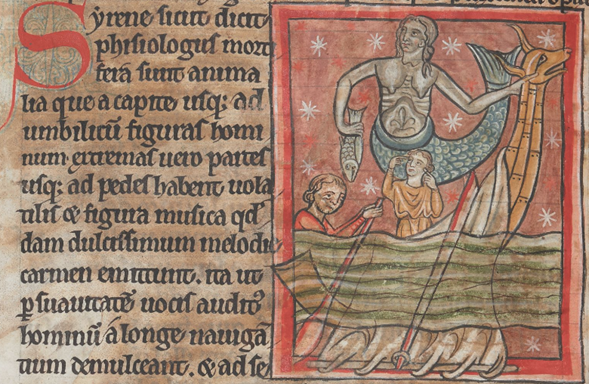 Syrene sicut dicit
phisiologus mort
fera sunt anima
lia que a capite usq; ad
umbilicū figuras homi
num· extremas uero partes
usq; ad pedes habent uola
tilis & figura musica qd'
dam dulcissimum melodie
carmen emittunt. ita ut
p suauitatē uocis auditꝰ
hominū a longe nauigā
tium demulceant. & ad se